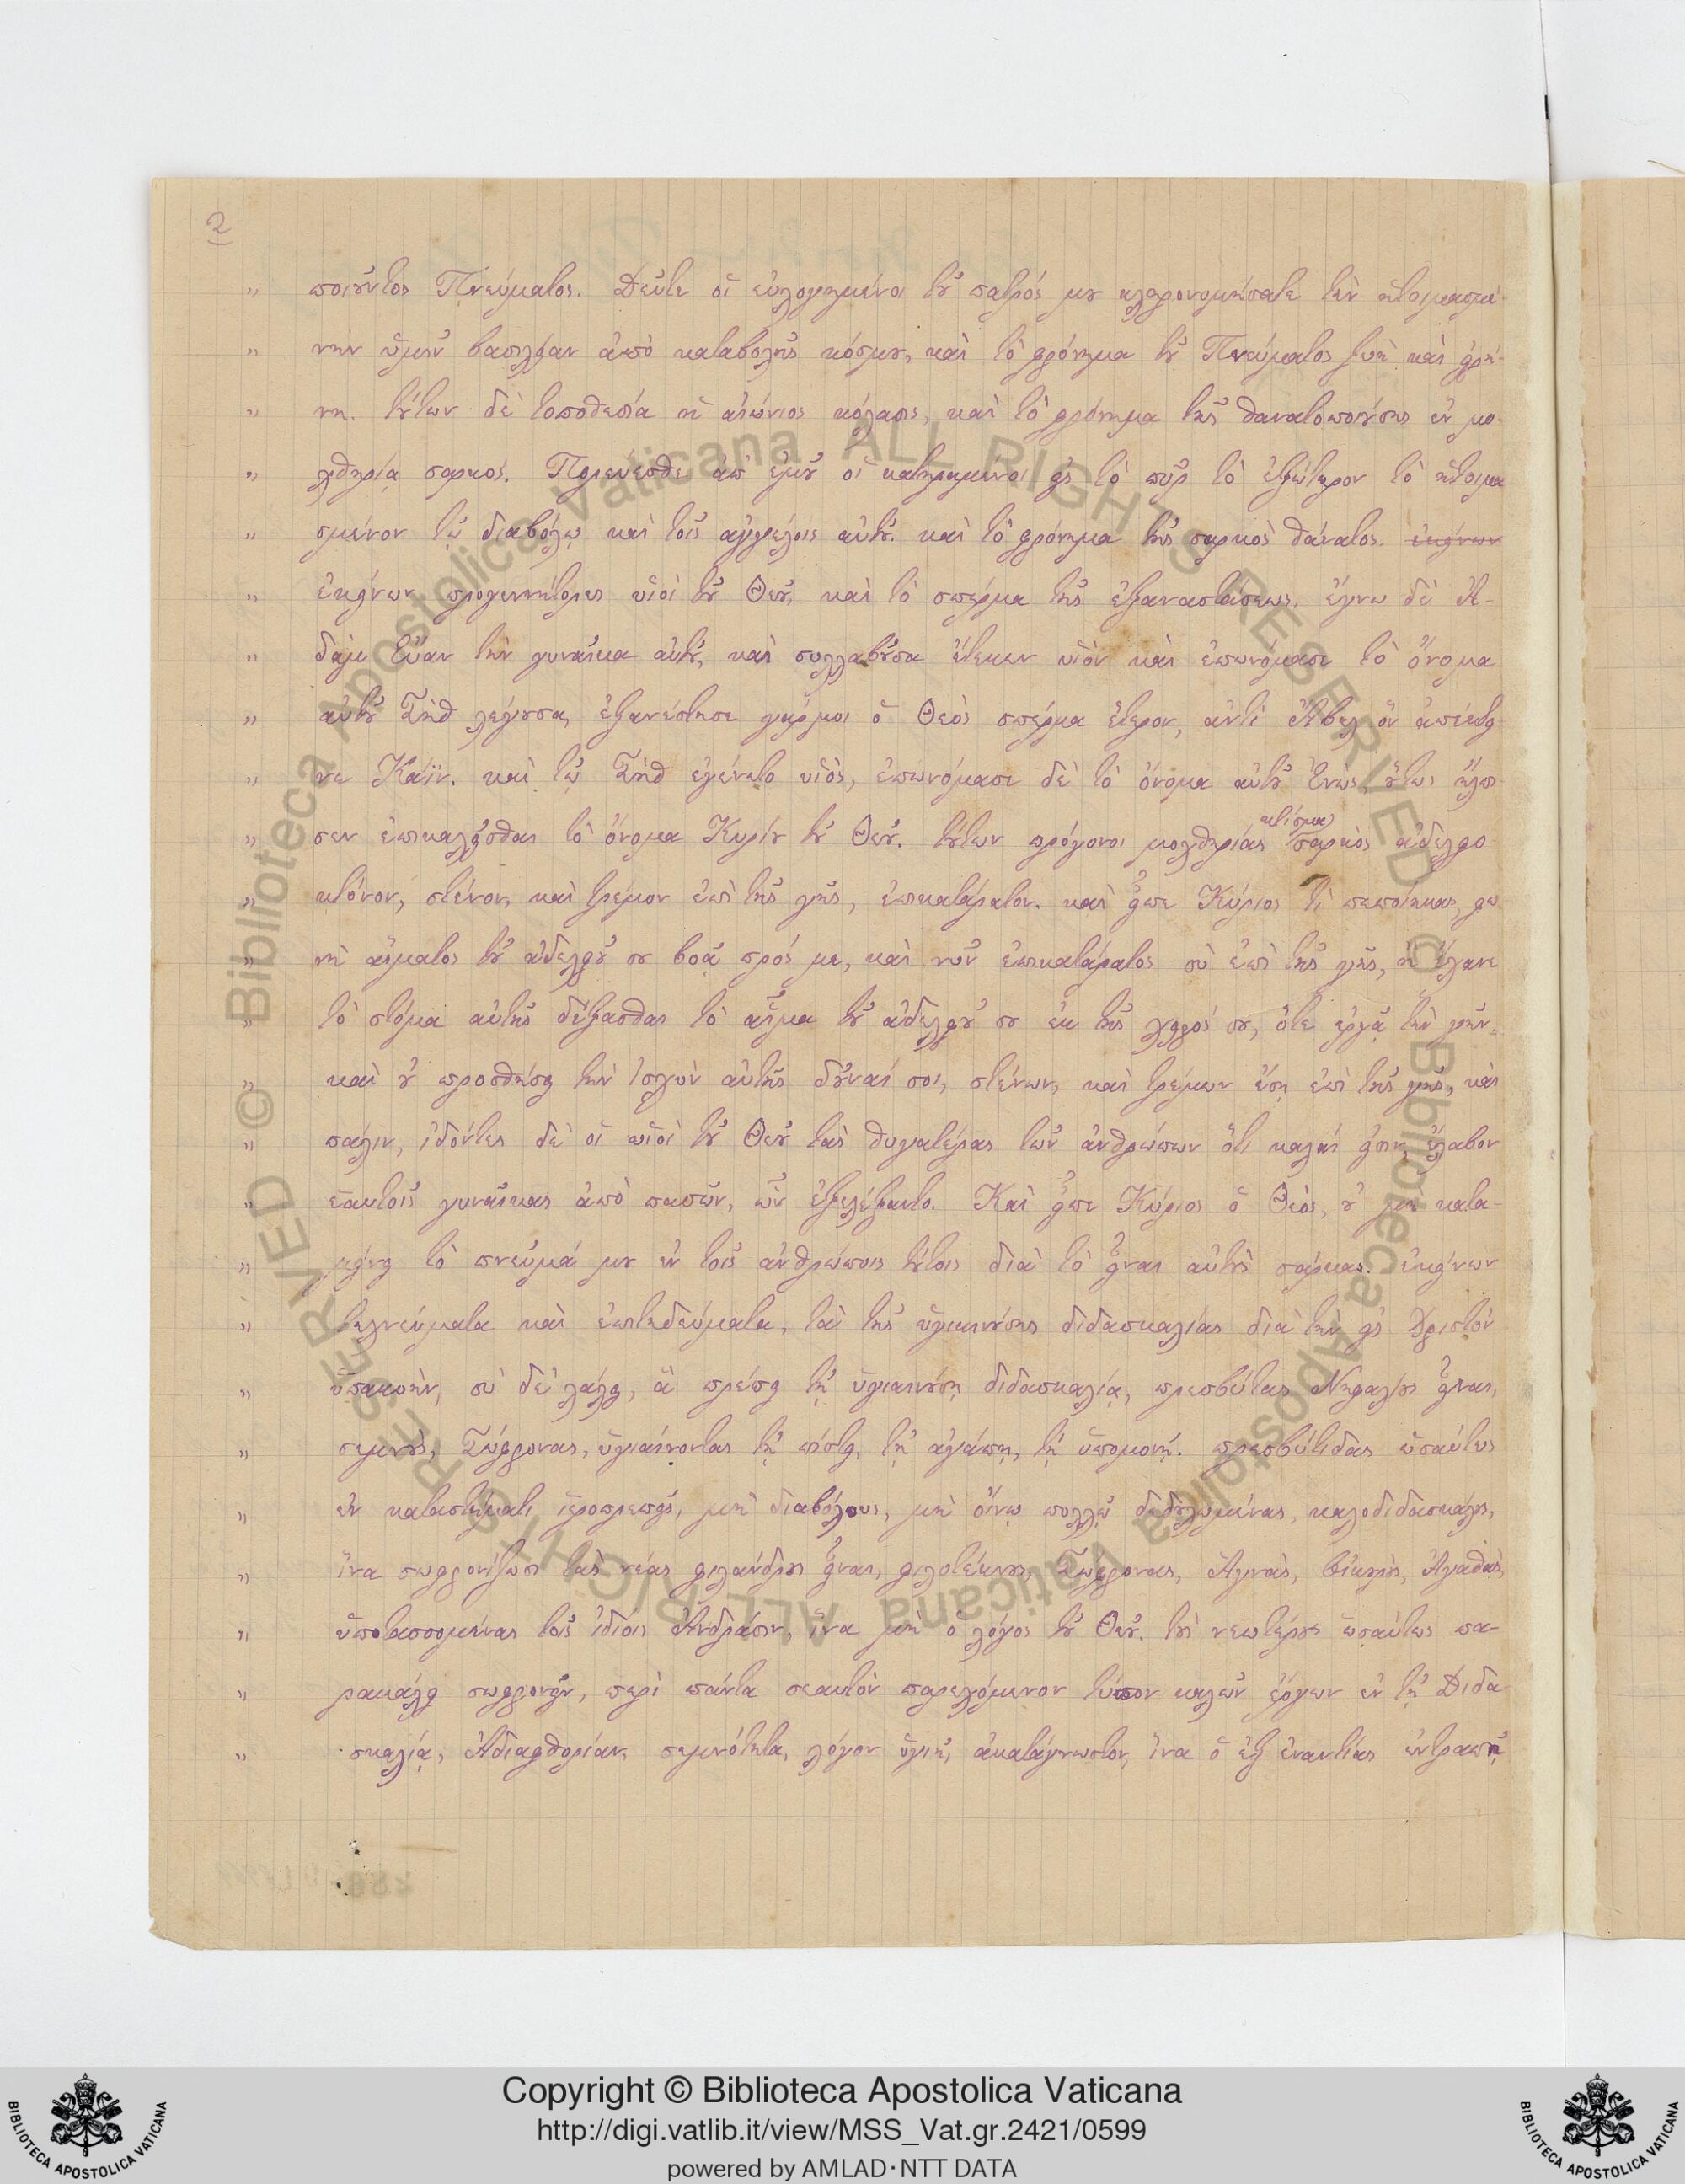 2
„ ποιοῦντος Πνεύματος. Δεῦτε οἱ εὐλογημένοι τοῦ πατρός μου κληρονομήσατε τὴν ἡτοιμασμέ-
„ νην ὑμῖν βασιλείαν ἀπὸ καταβολῆς κόσμου, καὶ τὸ φρόνημα τοῦ Πνεύματος ζωὴ καὶ εἰρή-
„ νη. τούτων δὲ τοποθεσία ἡ αἰώνιος κόλασις, καὶ τὸ φρόνημα τῆς θανατοποιούσης ἐν μο-
„ χθηρίᾳ σαρκός. Πορευεσθε ἀπ' ἐμοῦ οἱ κατηραμενοι εἰς τὸ πῦρ τὸ ἐξώτερον τὸ ἡτοιμα
„ σμένον τῷ διαβόλῳ καὶ τοῖς ἀγγέλοις αὐτοῦ. καὶ τὸ φρόνημα τῆς σαρκὸς θάνατος. ἐκείνων
„ ἐκείνων προγεννήτορες υἱοὶ τοῦ Θεοῦ, καὶ τὸ σπέρμα τῆς ἐξαναστάσεως. ἔγνω δὲ Ἀ-
„ δὰμ Εὔαν τὴν γυναῖκα αὐτοῦ, καὶ συλλαβοῦσα ἔτεκεν υἱὸν καὶ ἐπωνόμασε τὸ ὄνομα
„ αὐτοῦ Σὴθ λέγουσα, ἐξανέστησε γάρ μοι ὁ Θεὸς σπέρμα ἕτερον, ἀντὶ Ἄβελ ὃν ἀπέκτει
„ νε Κάϊν. καὶ τῷ Σὴθ ἐγένετο υἱὸς, ἐπωνόμασε δὲ τὸ ὄνομα αὐτοῦ Ἐνώς, οὗτος ἤλπι
„ σεν ἐπικαλεῖσθαι τὸ ὄνομα Κυρίου τοῦ Θεοῦ. τούτων πρόγονοι μοχθηρίας κτίσμα σαρκὸς ἀδελφο
„ κτόνον, στένον, καὶ τρέμον ἐπὶ τῆς γῆς, ἐπικατάρατον. καὶ εἶπε Κύριος τὶ πεποίηκας, φω
„ νὴ αἵματος τοῦ ἀδελφοῦ σου βοᾷ πρός με, καὶ νῦν ἐπικατάρατος σὺ ἐπὶ τῆς γῆς, ἣ ἔχανε
„ τὸ στόμα αὐτῆς δέξασθαι τὸ αἷμα τοῦ ἀδελφοῦ σου ἐκ τῆς χειρός σου, ὅτε ἐργᾷ τὴν γῆν.
„ καὶ οὐ προσθήσει τὴν ἰσχὺν αὐτῆς δοῦναί σοι, στένων, καὶ τρέμων ἔσῃ ἐπὶ τῆς γῆς, καὶ
„ πάλιν, ἰδόντες δὲ οἱ υἱοὶ τοῦ Θεοῦ τὰς θυγατέρας τῶν ἀνθρώπων ὅτι καλαί εἰσιν, ἔλαβον
„ ἑαυτοῖς γυναῖκας ἀπὸ πασῶν, ὧν ἐξελέξαντο. Καὶ εἶπε Κύριος ὁ Θεὸς, οὐ μὴ κατα-
„ μείνει τὸ πνεῦμά μου ἐν τοῖς ἀνθρώποις τούτοις διὰ τὸ εἶναι αὐτοὺς σάρκας. ἐκείνων
„ τεχνεύματα καὶ ἐπιτηδεύματα, τὰ τῆς ὑγιαινούσης διδασκαλίας διὰ τὴν εἰς Χριστόν
„ ὑπακοὴν, σὺ δὲ λάλει, ἃ πρέπει τῇ ὑγιαινούσῃ διδασκαλίᾳ, πρεσβύτας Νηφαλίους εἶναι,
„ σεμνοὺς, Σώφρονας, ὑγιαίνοντας τῇ πίστει, τῇ ἀγάπῃ, τῇ ὑπομονῇ. πρεσβύτιδας ὡσαύτως
„ ἐν καταστήματι ἱεροπρεπεῖς, μὴ διαβόλους, μὴ οἴνῳ πολλῷ δεδουλωμένας, καλοδιδασκάλους,
„ ἵνα σωφρονίζωσι τὰς νέας φιλάνδρους εἶναι, φιλοτέκνους, Σώφρονας, Ἁγνὰς, Οἰκουροὺς, Ἀγαθὰς,
„ ὑποτασσομένας τοῖς ἰδίοις Ἀνδράσιν, ἵνα μὴ ὁ λόγος τοῦ Θεοῦ. τοὺς νεωτέρους ὡσαύτως πα
„ ρακάλει σωφρονεῖν, περὶ πάντα σεαυτὸν παρεχόμενον τύπον καλῶν ἔργων ἐν τῇ Διδα
„ σκαλίᾳ, Ἀδιαφθορίαν, σεμνότητα, λόγον ὑγιῆ, ἀκατάγνωστον, ἵνα ὁ ἐξ ἐναντίας ἐντραπῇ
© Biblioteca Apostolica Vaticana ALL RIGHTS RESERVED © Biblioteca Apostolica Vaticana ALL RIGHTS RESERVED
BIBLIOTECA APOSTOLICA VATICANA
Copyright © Biblioteca Apostolica Vaticana
http://digi.vatlib.it/view/MSS_Vat.gr.2421/0599
powered by AMLAD·NTT DATA
BIBLIOTECA APOSTOLICA VATICANA